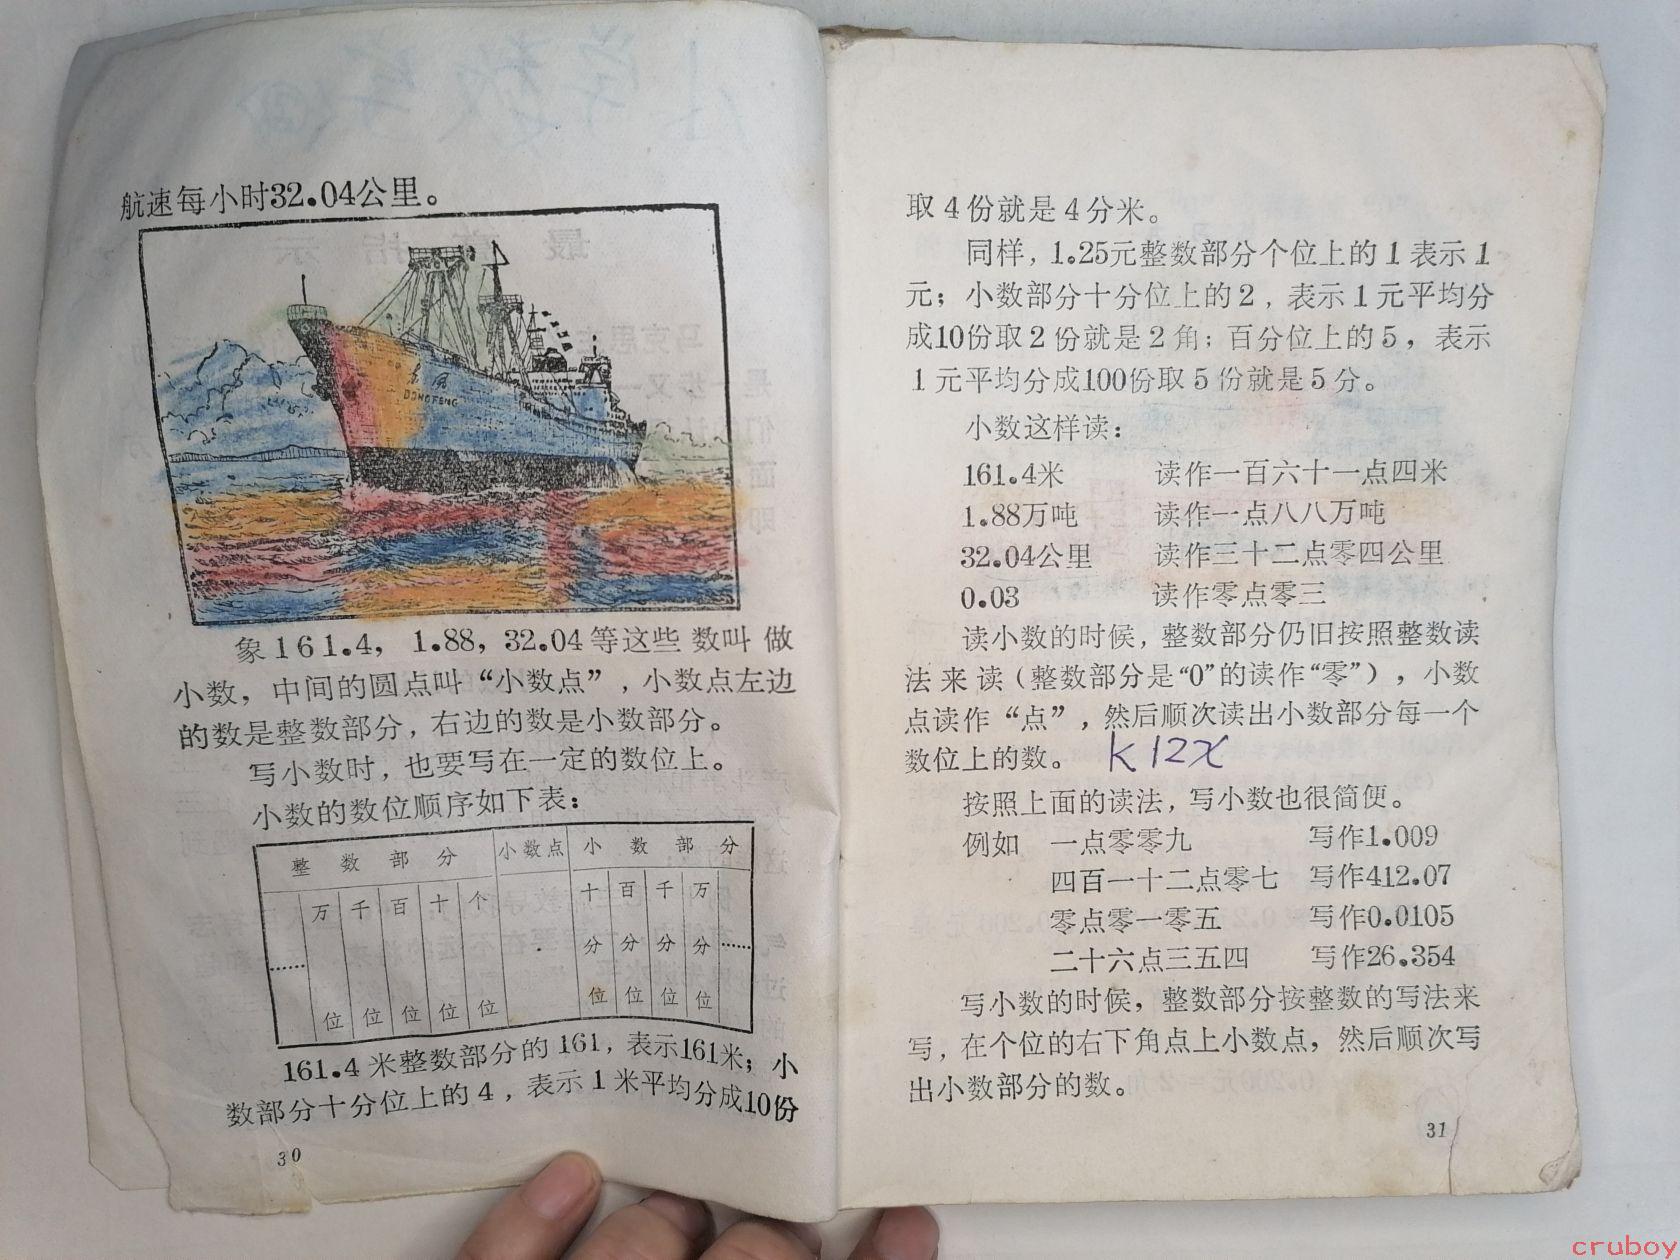 航速每小时32.04公里。
东风
DONGFENG
象161.4，1.88，32.04等这些数叫做
小数，中间的圆点叫“小数点”，小数点左边
的数是整数部分，右边的数是小数部分。
写小数时，也要写在一定的数位上。
小数的数位顺序如下表：
整数部分 小数点 小数部分
…… 万位 千位 百位 十位 个位 . 十分位 百分位 千分位 万分位 ……
161.4米整数部分的161，表示161米；小
数部分十分位上的4，表示1米平均分成10份
30
取4份就是4分米。
同样，1.25元整数部分个位上的1表示1
元；小数部分十分位上的2，表示1元平均分
成10份取2份就是2角；百分位上的5，表示
1元平均分成100份取5份就是5分。
小数这样读：
161.4米 读作一百六十一点四米
1.88万吨 读作一点八八万吨
32.04公里 读作三十二点零四公里
0.03 读作零点零三
读小数的时候，整数部分仍旧按照整数读
法来读（整数部分是“0”的读作“零”），小数
点读作“点”，然后顺次读出小数部分每一个
数位上的数。 K12X
按照上面的读法，写小数也很简便。
例如 一点零零九 写作1.009
四百一十二点零七 写作412.07
零点零一零五 写作0.0105
二十六点三五四 写作26.354
写小数的时候，整数部分按整数的写法来
写，在个位的右下角点上小数点，然后顺次写
出小数部分的数。
31
cruboy